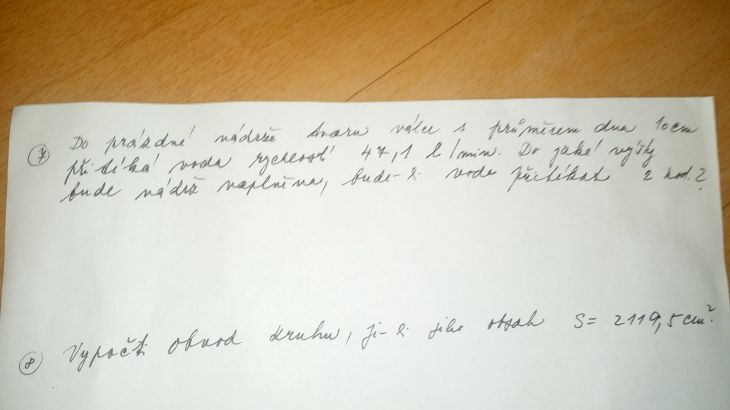 7 Do prázdné nádrže tvaru válce s průměrem dna 10cm
přitéká voda rychlostí 47,1 l/min. Do jaké výšky
bude nádrž naplněna, bude-li voda přitékat 2 hod.?
8 Vypočti obvod kruhu, je-li jeho obsah S= 2119,5cm².